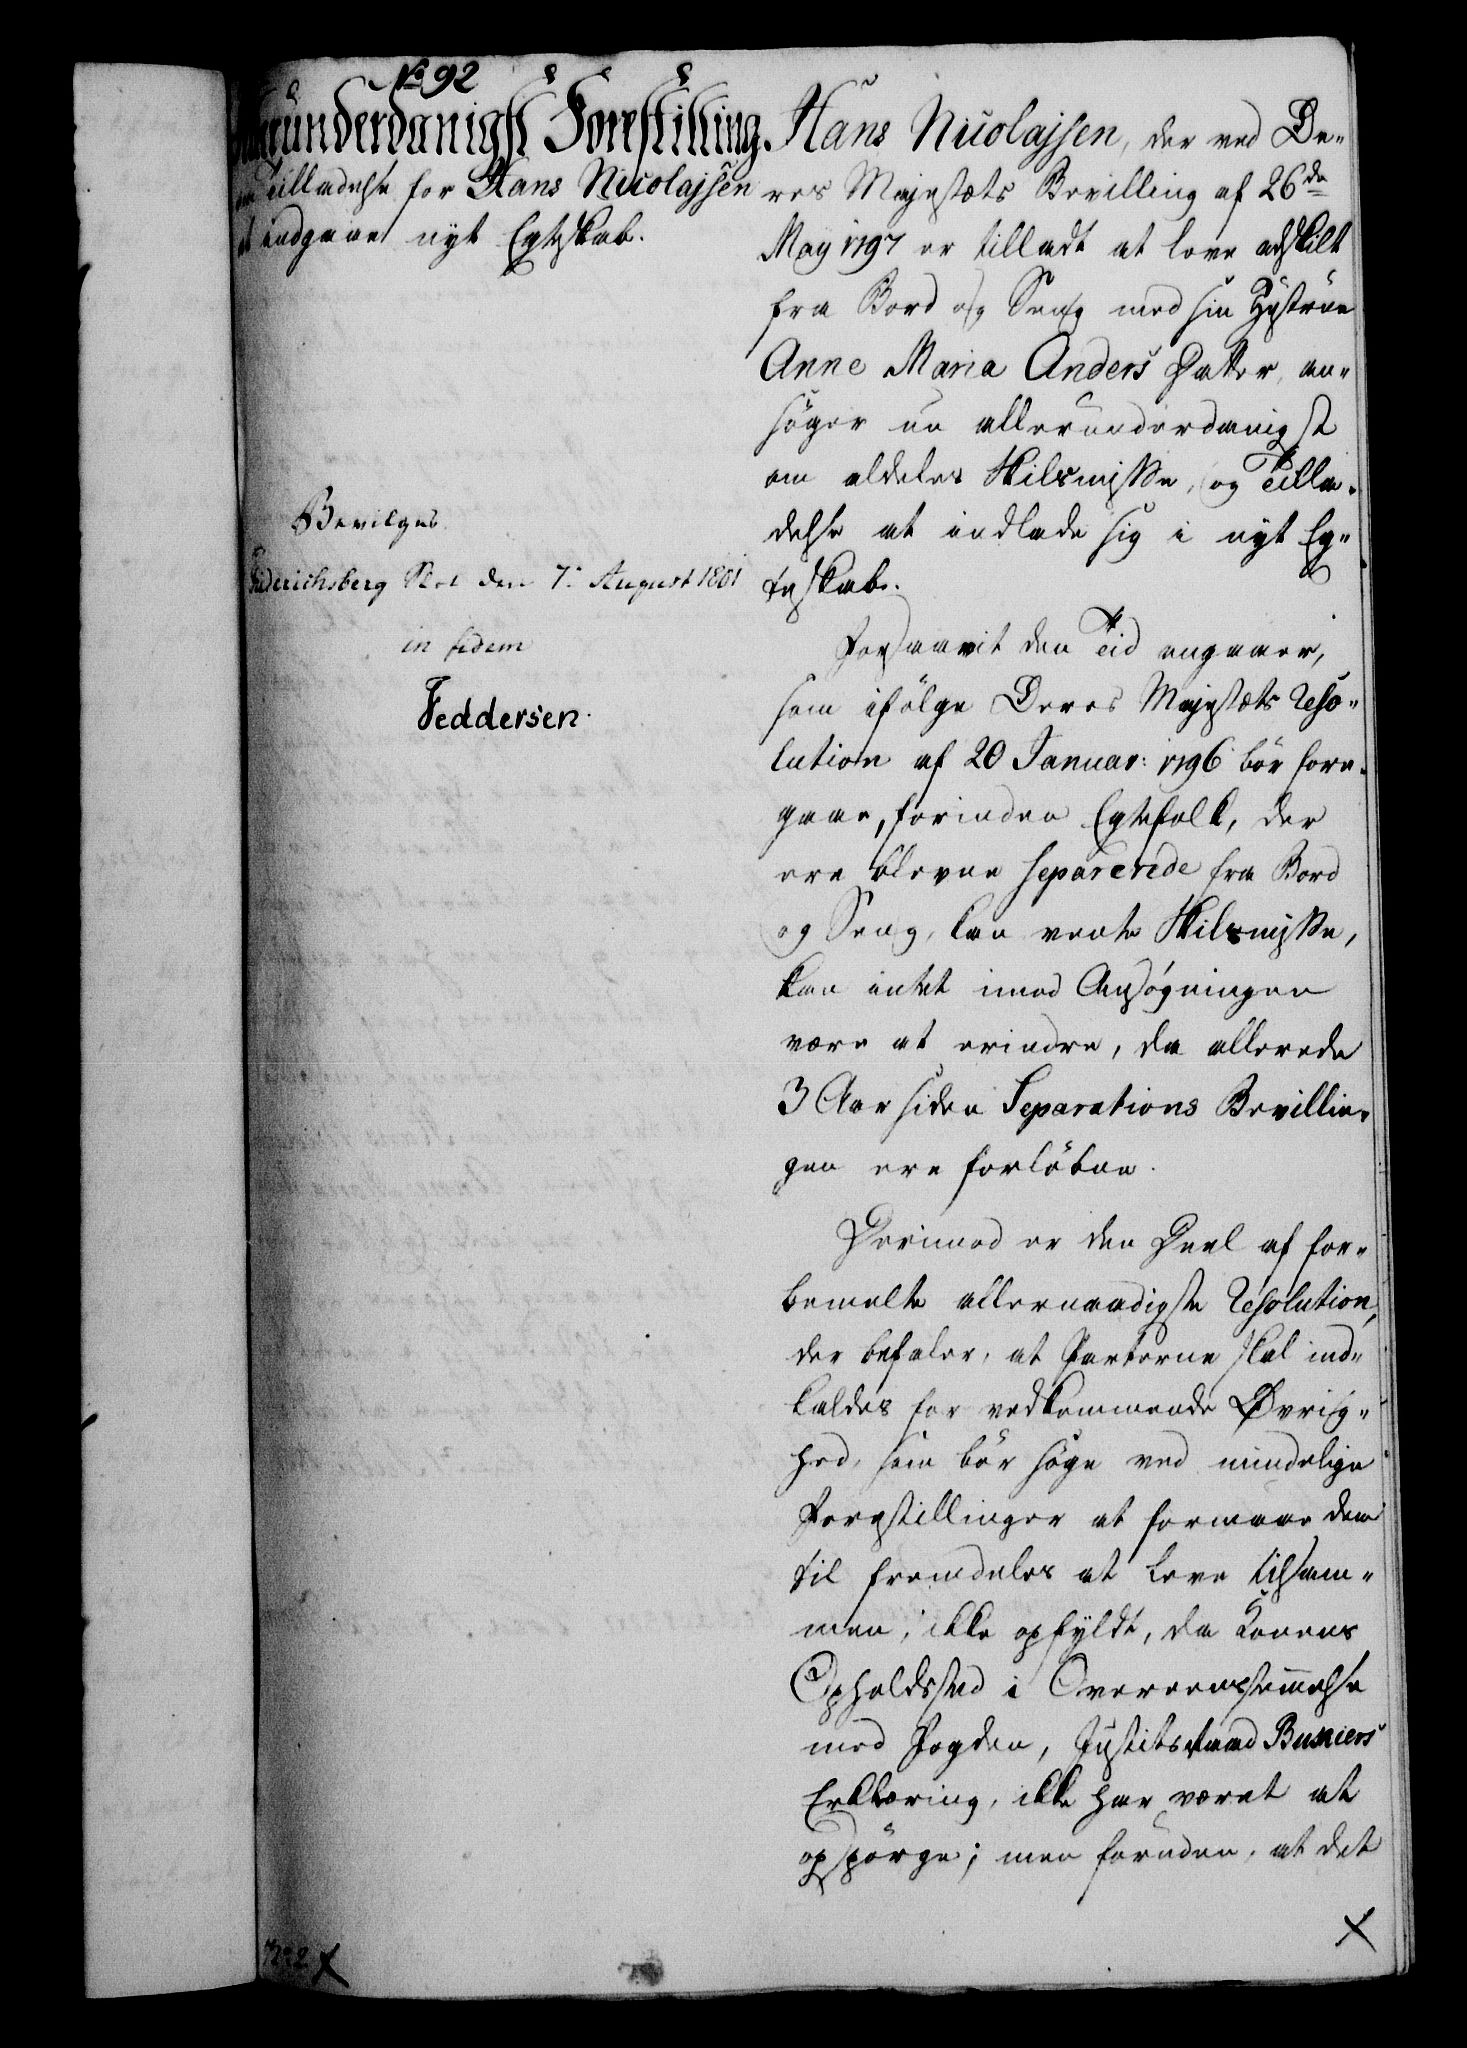 No 92
Allerunderdanigst Forestilling.
om Tilladelse for Hans Nicolajsen
at indgaae nyt Egteskab.
Bevilges
Friderichsberg Slot den 7. August 1801
in fidem
Feddersen.
Hans Nicolajsen, der ved De-
res Majestæts Bevilling af 26de
May 1797 er tilladt at leve adskilt
fra Bord og Seng med sin Hustrue
Anne Maria Anders Datter, an-
søger nu allerunderdanigst
om aldeles Skilsmisse, og Tilla-
delse at indlade sig i nyt Eg-
teskab.
Forsaavit den Tid angaaer,
som ifølge Deres Majestæts Reso-
lution af 20 Januar: 1796 bør fore-
gaae, forinden Egtefolk, der
ere blevne separerede fra Bord
og Seng, kan vente Skilsmisse,
kan intet imod Ansøgningen
være at erindre, da allerede
3 Aar siden Separations Bevillin-
gen ere forløbne.
Derimod er den Deel af for-
bemelte allernaadigste Resolution,
der befaler, at Parterne skal ind-
kaldes for vedkommende Øvrig-
hed, som bør søge ved mindelige
Forestillinger at formaae dem
til fremdeles at leve tilsam-
men, ikke opfyldt, da Konens
Opholdssted i Overeensstemmelse
med Fogden, Justitsraad Buniers
Erklæring, ikke har været at
opspørge; men foruden, at det